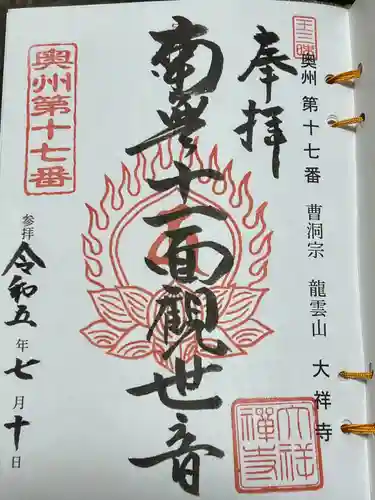 奉拝
奥州 第十七番 曹洞宗 龍雲山 大祥寺
南無十一面観世音
奥州第十七番
参拝 令和五年七月十日
大祥
禅寺